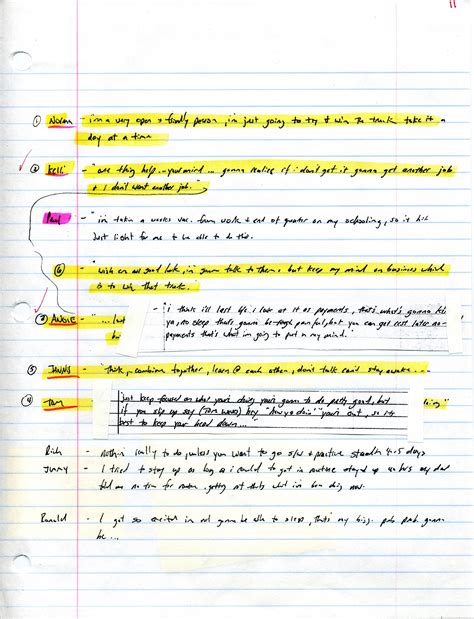 11
① Norma - i'm a very open & friendly person, i'm just going to try & win the truck take it a
day at a time
② Kelli - "one thing help... your mind... gonna realise if i don't get it gonna get another job
& I don't want another job."
Paul - "i'm takin a weeks vac. from work & end of quarter on my schooling, so it
just for me to be able to do this.
⑥ "wish em all good luck, i'm gonna talk to them, but keep my mind on business which
is to win that truck.
③ ANGIE - "... last
- i think i'll last. I look at it as payments, that's what's gonna
ya, no sleep that's gonna be painful, but you can get rest later no-
payments that's what i'm going to put in my mind."
⑤ JANIS - "think, combine together, lean @ each other, don't talk can't stay awake...
④ Tom
just keep focused on what your doing your gonna do pretty good, but
if you slip up say hey "how ya doin'" you're out, so it's
best to keep your head down..."
Rich - nothin really to do unless you want to go and practice 4-5 days
Jimmy - I tried to stay up as long as i could to get in stayed up hrs my dad
told me no time for that's what i been doing now.
Ronald - I got so excited i'm not gonna be able to sleep, that's my gonna
be...